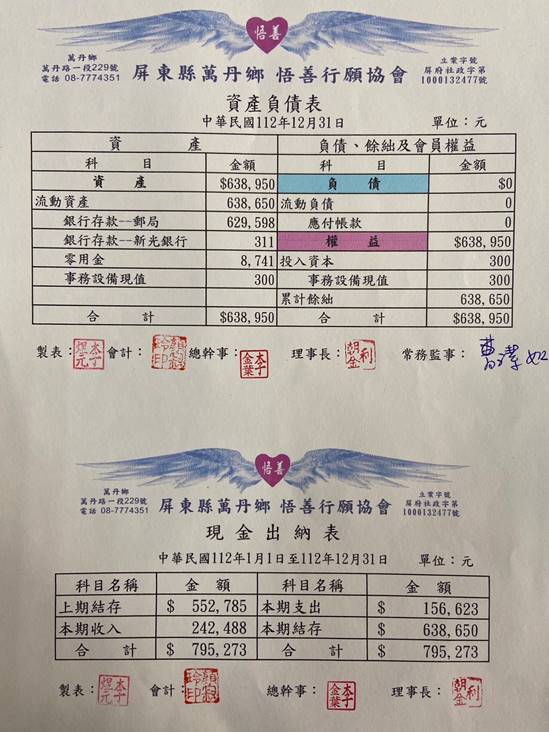 悟善
萬丹鄉
萬丹路一段229號
電話 08-7774351
屏東縣萬丹鄉 悟善行願協會
立案字號
屏府社政字第
1000132477號
資產負債表
中華民國112年12月31日 單位：元
資 產 負債、餘絀及會員權益
科 目 金額 科 目 金額
資 產 $638,950 負 債 $0
流動資產 638,650 流動負債 0
銀行存款--郵局 629,598 應付帳款 0
銀行存款--新光銀行 311 權 益 $638,950
零用金 8,741 投入資本 300
事務設備現值 300 事務設備現值 300
累計餘絀 638,650
合 計 $638,950 合 計 $638,950
製表： 會計： 總幹事： 理事長： 常務監事：
悟善
萬丹鄉
萬丹路一段229號
電話 08-7774351
屏東縣萬丹鄉 悟善行願協會
立案字號
屏府社政字第
1000132477號
現金出納表
中華民國112年1月1日至112年12月31日 單位：元
科目名稱 金 額 科目名稱 金 額
上期結存 $ 552,785 本期支出 $ 156,623
本期收入 242,488 本期結存 $ 638,650
合 計 $ 795,273 合 計 $ 795,273
製表： 會計： 總幹事： 理事長：